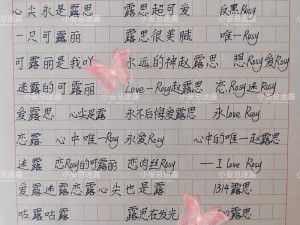 心尖永是露思 露思起可爱 反黑Rosy
一只可露丽 露思很美喊 唯一Rosy
可露丽是我吖 永远的神赵露思 想Rosy爱Rosy
迷露的可露丽 Love-Rosy赵露思 恋Rosy迷Rosy
爱露思 心尖是露 永不后悔爱露思 永爱Rosy
恋露 心中唯一Rosy 永爱Rosy 心中的唯一赵露思
迷露 恋Rosy的可露丽 恋的丝Rosy —I love Rosy
爱露迷露恋露心尖也是露 1314露思
咕露咕露 露思在发光 露思
小安总迷露